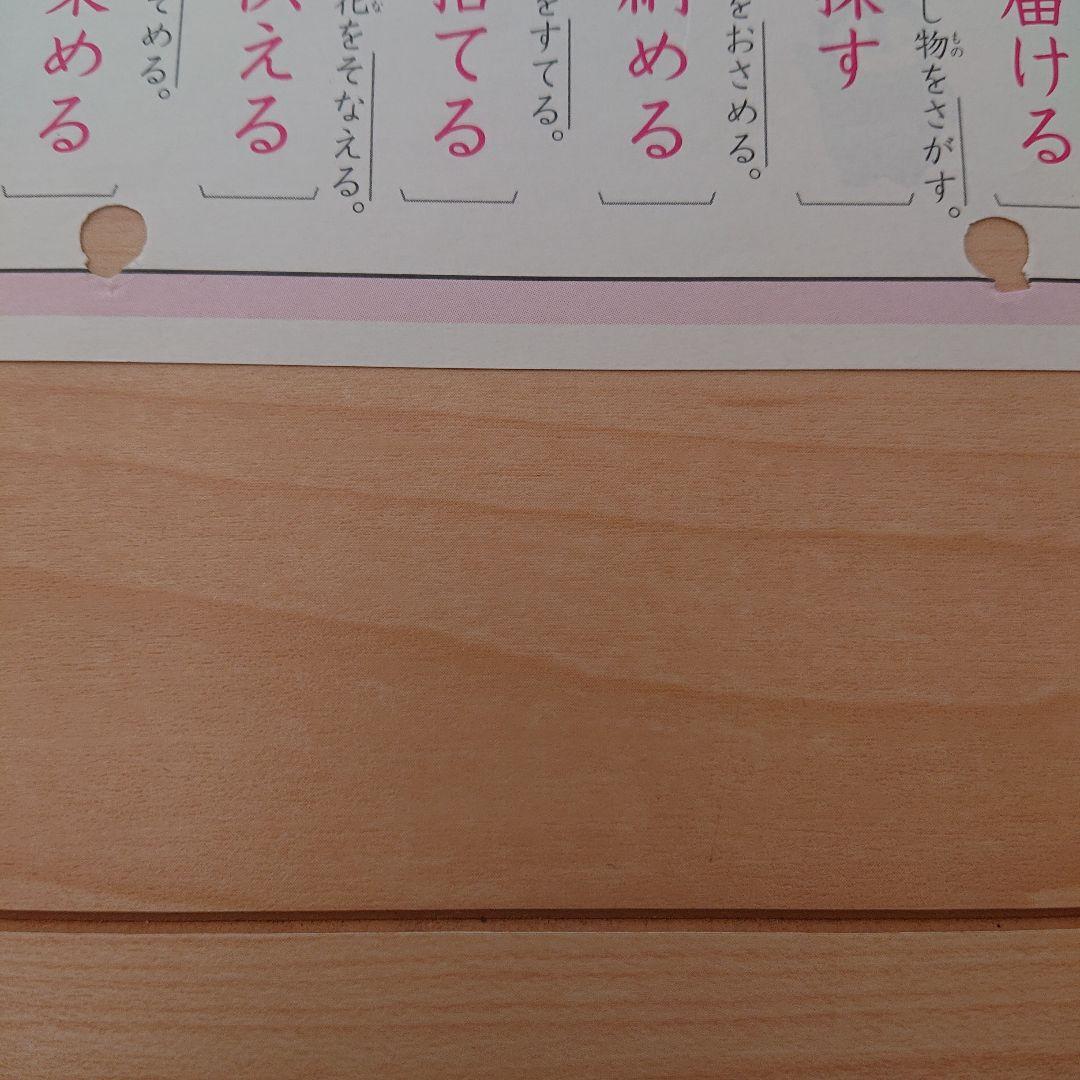 届ける
し物をさがす。
もの
探す
をおさめる。
納める
をすてる。
捨てる
花をそなえる。
供える
める。
める